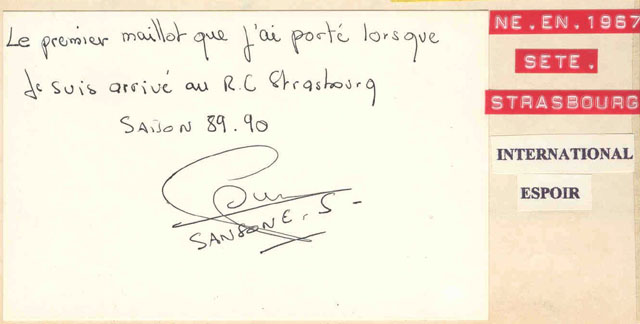 Le premier maillot que j'ai porté lorsque
Je suis arrivé au R.C Strasbourg
SAISON 89.90
SANSONE.S-
NE.EN.1967
SETE.
STRASBOURG
INTERNATIONAL
ESPOIR